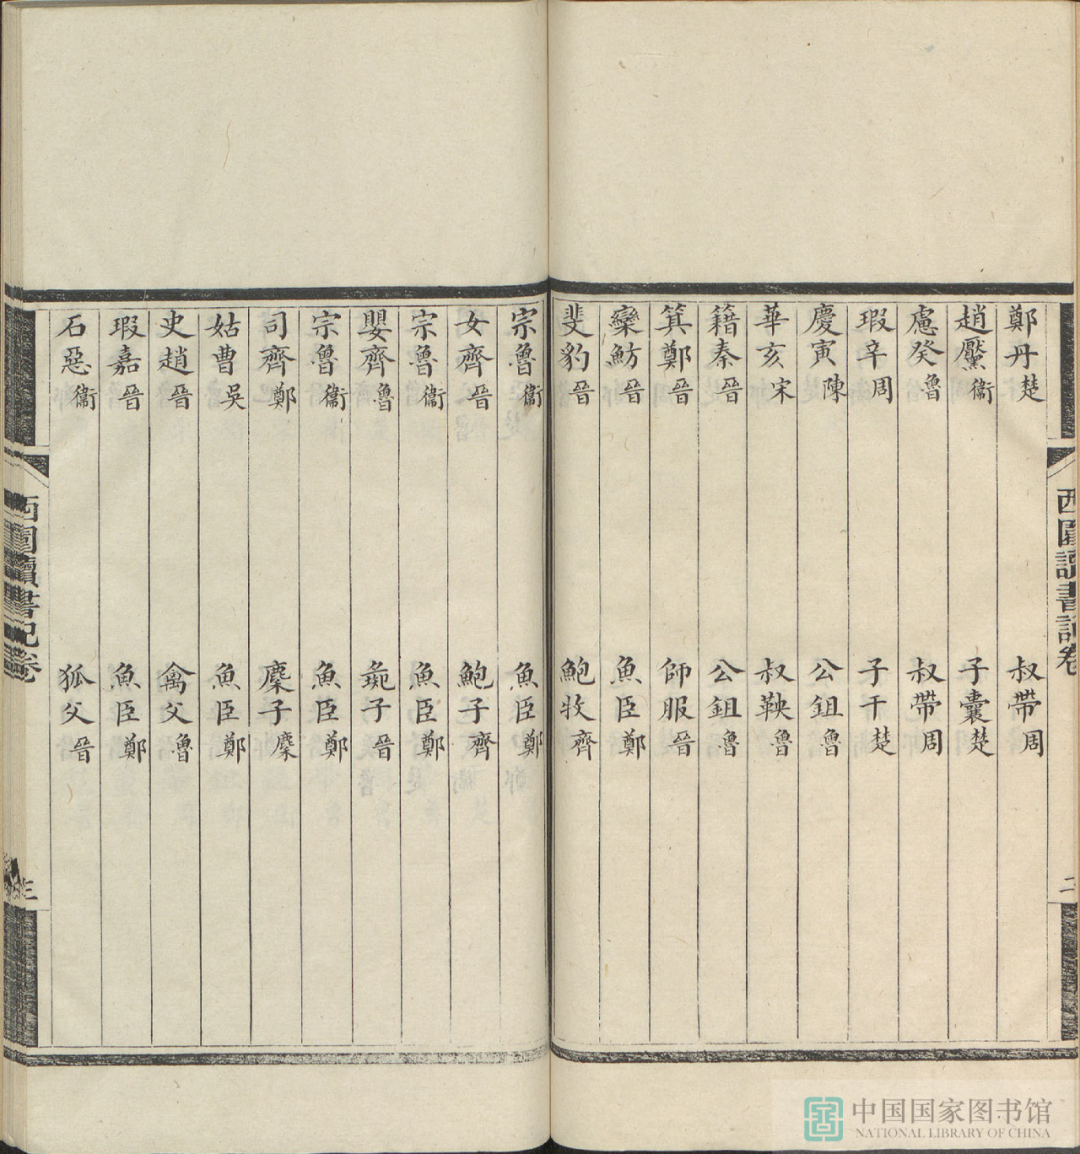 鄭丹楚 叔帶周
趙黶衞 子囊楚
慮癸魯 叔帶周
瑕辛周 子干楚
慶寅陳 公鉏魯
華亥宋 叔鞅魯
籍秦晉 公鉏魯
箕鄭晉 師服晉
欒魴晉 魚臣鄭
斐豹晉 鮑牧齊
宗魯衞 魚臣鄭
女齊晉 鮑子齊
宗魯衞 魚臣鄭
嬰齊魯 彘子晉
宗魯衞 魚臣鄭
司齊鄭 麇子麇
姑曹吳 魚臣鄭
史趙晉 禽父魯
瑕嘉晉 魚臣鄭
石惡衞 狐父晉
西圃讀書記卷
二
西圃讀書記卷
三
中国国家图书馆
NATIONAL LIBRARY OF CHINA